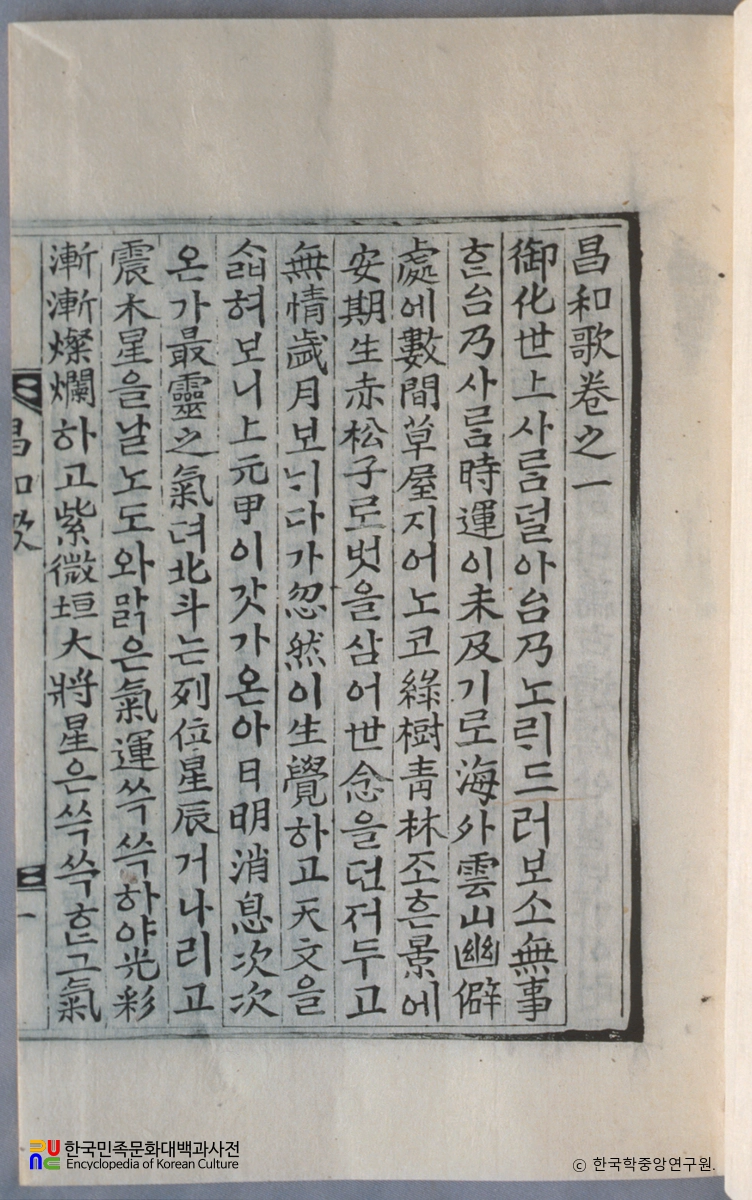 昌和歌卷之一
御化世上사ᄅᆞᆷ덜아台乃노ᄅᆡ드러보소無事
ᄒᆞᆫ台乃사ᄅᆞᆷ時運이未及기로海外雲山幽僻
處에數間草屋지어노코綠樹靑林조흔景에
安期生赤松子로벗을삼어世念을던저두고
無情歲月보ᄂᆡ다가忽然이生覺하고天文을
ᄉᆞᆲ혀보니上元甲이갓가온아日明消息次次
온가最靈之氣뎌北斗는列位星辰거나리고
震木星을날노도와맑은氣運쓱쓱하야光彩
漸漸燦爛하고紫微垣大將星은쓱쓱ᄒᆞᆫ그氣
昌和歌
一
한국민족문화대백과사전
Encyclopedia of Korean Culture
ⓒ 한국학중앙연구원.